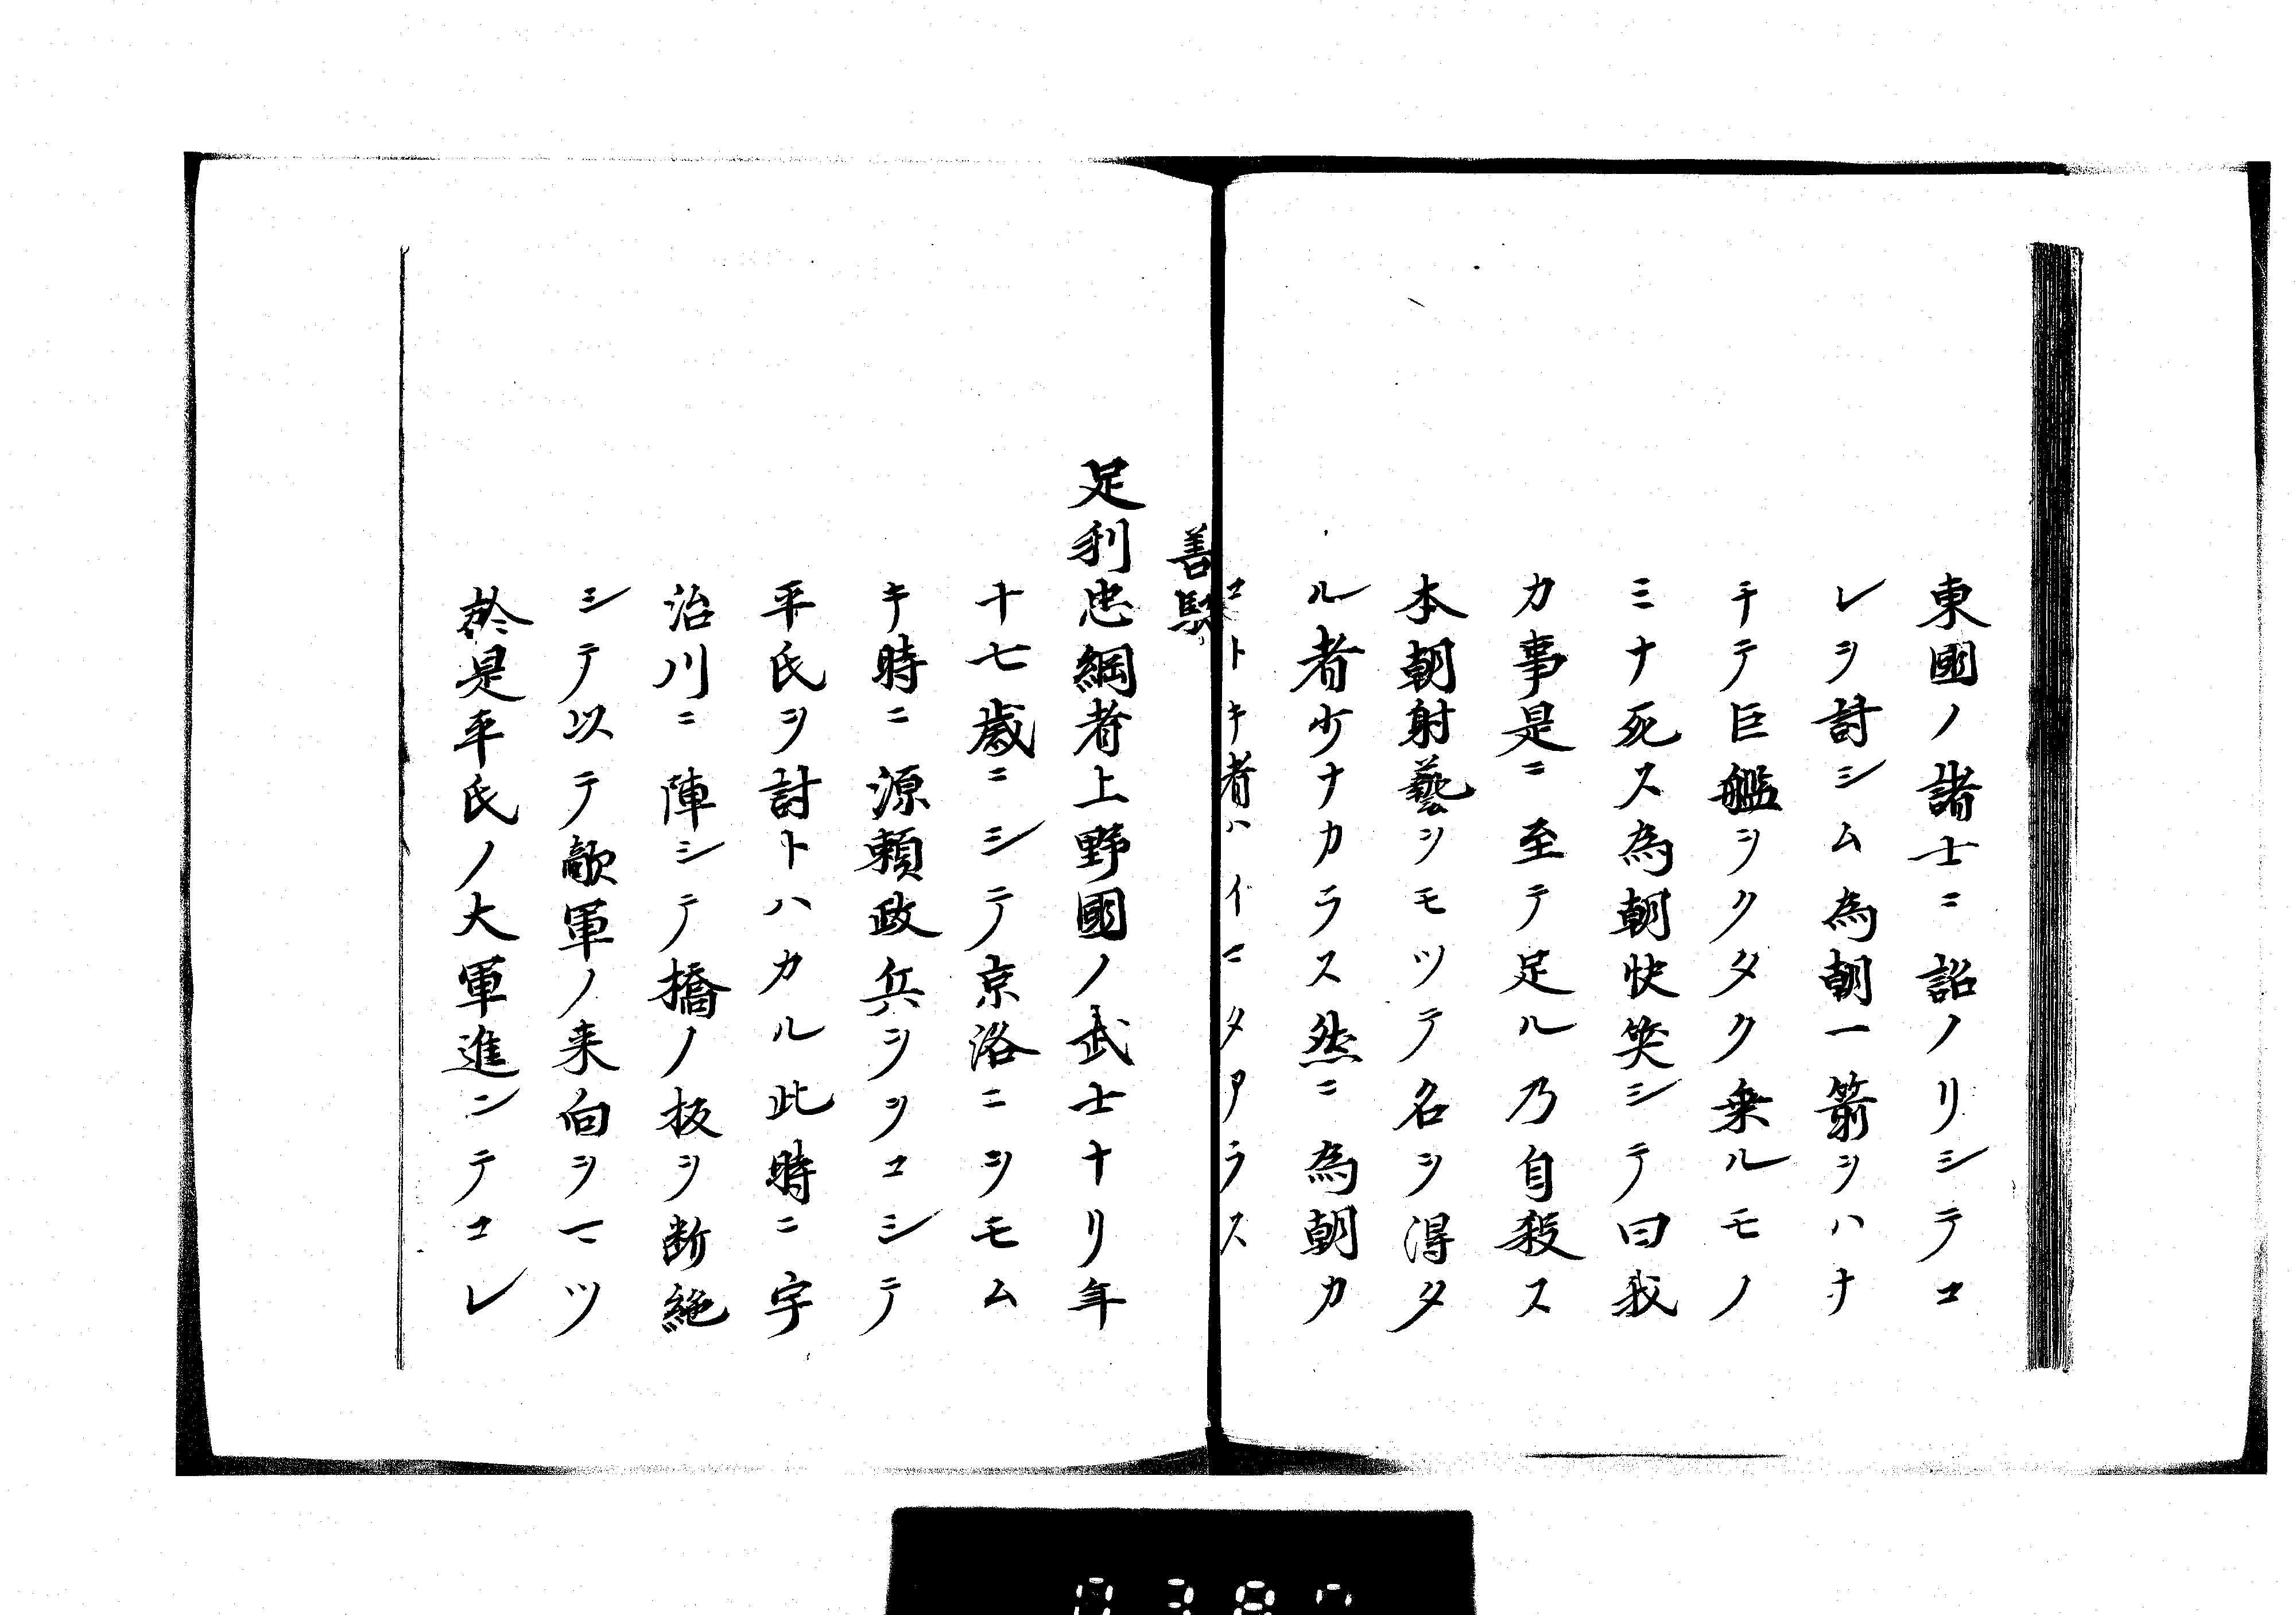 東國ノ諸士ニ詔ノリシテコ
レヲ討シム為朝一箭ヲハナ
チテ巨艦ヲクタク乗ルモノ
ミナ死ス為朝快笑シテ曰我
カ事是ニ至テ足ル乃自殺ス
本朝射藝ヲモツテ名ヲ得タ
ル者少ナカラス然ニ為朝カ
コトキ者ハイマタアラス
善騎
足利忠綱者上野國ノ武士ナリ年
十七歳ニシテ京洛ニヲモム
キ時ニ源頼政兵ヲヲコシテ
平氏ヲ討トハカル此時ニ宇
治川ニ陣シテ橋ノ板ヲ断絶
シテ以テ敵軍ノ来向ヲマツ
於是平氏ノ大軍進ンテコレ